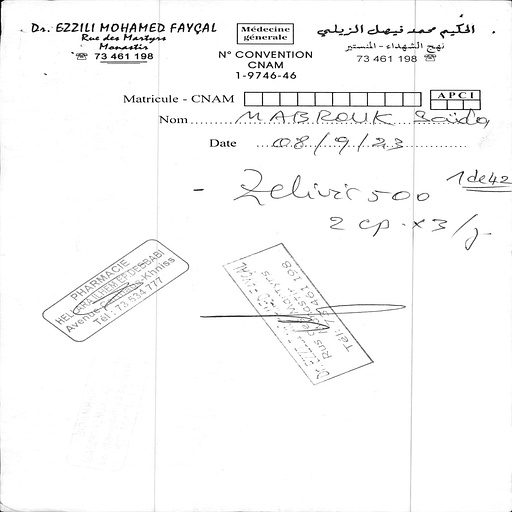 Dr. EZZILI MOHAMED FAYÇAL
Rue des Martyrs
Monastir
☎ 73 461 198
Médecine
génerale
N° CONVENTION
CNAM
1-9746-46
الحكيم محمد فيصل الزيلي
نهج الشهداء - المنستير
73 461 198 ☎
Matricule - CNAM
APCI
Nom MABROUK Saida
Date 08/9/23
- Zelivir 500 1 de 42
2 cp x 3/j
PHARMACIE
Avenue Khniss
Tél : 73 534 777
Dr. EZZILI
Rue des Martyrs
Tél: 73 461 198